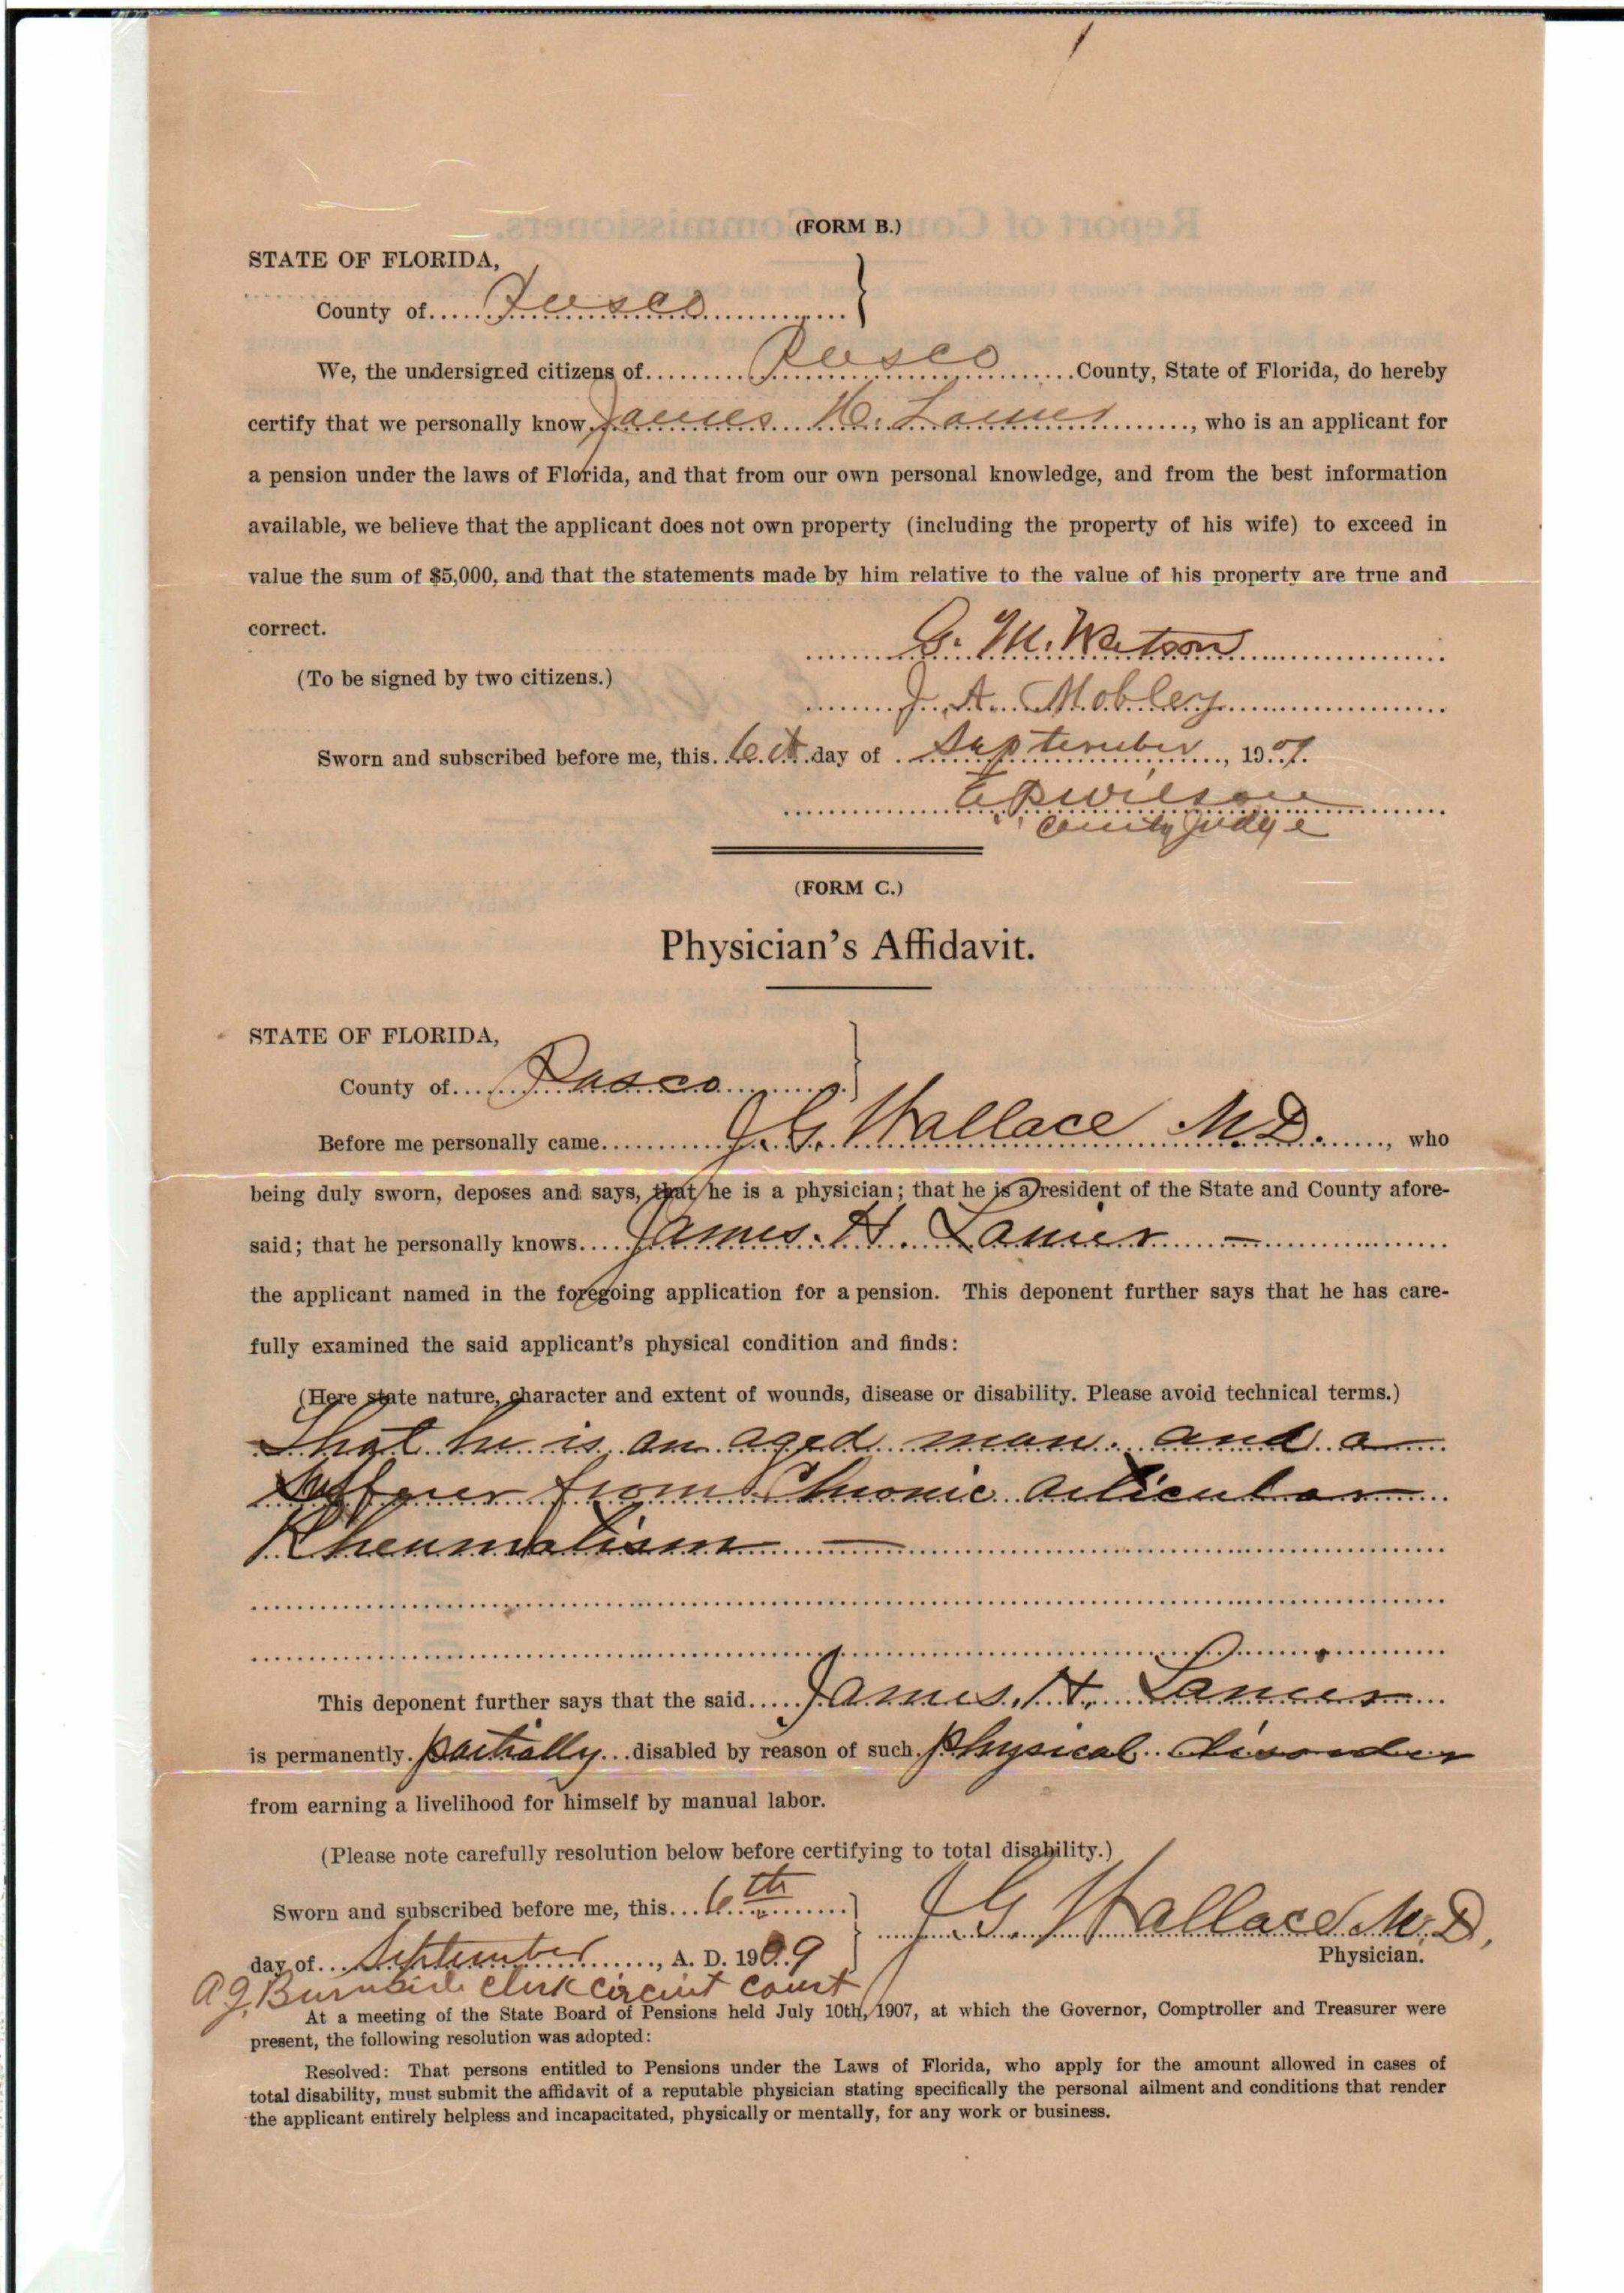 (FORM B.)
STATE OF FLORIDA,
County of Pasco
We, the undersigned citizens of Pasco County, State of Florida, do hereby
certify that we personally know James H. Lanier, who is an applicant for
a pension under the laws of Florida, and that from our own personal knowledge, and from the best information
available, we believe that the applicant does not own property (including the property of his wife) to exceed in
value the sum of $5,000, and that the statements made by him relative to the value of his property are true and
correct.
G. M. Watson
(To be signed by two citizens.)
J. A. Mobley
Sworn and subscribed before me, this 6th day of September, 190
Wilson
County Judge
(FORM C.)
Physician's Affidavit.
STATE OF FLORIDA,
County of Pasco
Before me personally came J. G. Wallace M.D., who
being duly sworn, deposes and says, that he is a physician; that he is a resident of the State and County afore-
said; that he personally knows James. H. Lanier —
the applicant named in the foregoing application for a pension. This deponent further says that he has care-
fully examined the said applicant's physical condition and finds:
(Here state nature, character and extent of wounds, disease or disability. Please avoid technical terms.)
That he is an aged man. and a
Sufferer from Chronic Articular
Rheumatism —
This deponent further says that the said James. H. Lanier
is permanently partially disabled by reason of such physical disorder
from earning a livelihood for himself by manual labor.
(Please note carefully resolution below before certifying to total disability.)
Sworn and subscribed before me, this 6th
J. G. Wallace M.D,
day of September, A. D. 1909
Physician.
A J Burnside Clerk Circuit Court
At a meeting of the State Board of Pensions held July 10th, 1907, at which the Governor, Comptroller and Treasurer were
present, the following resolution was adopted:
Resolved: That persons entitled to Pensions under the Laws of Florida, who apply for the amount allowed in cases of
total disability, must submit the affidavit of a reputable physician stating specifically the personal ailment and conditions that render
the applicant entirely helpless and incapacitated, physically or mentally, for any work or business.